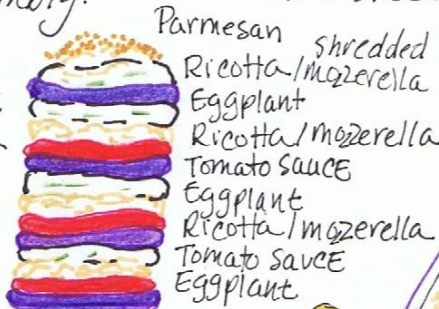 Parmesan
shredded
Ricotta/mozzerella
Eggplant
Ricotta/mozzerella
Tomato SaucE
Eggplant
Ricotta/mozzerella
Tomato SaucE
Eggplant